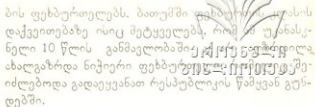 ბის ფეხბურთელებს. ბათუმში
დაქვეითებაზე ისიც მეტყველებს, რომ ამ უკანასკ-
ნელი 10 წლის განმავლობაში
ახალგაზრდა ნიჭიერი ფეხბურთელი შე-
იძლებოდა გადაეყვანათ რესპუბლიკის წამყვან გუნ-
დებში.